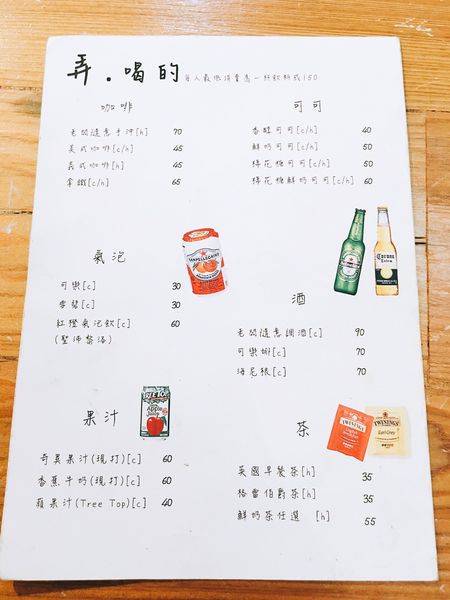 弄.喝的 每人最低消費為一杯飲料或150
咖啡
老闆隨意手沖[h] 70
美式咖啡[c/h] 45
義式咖啡[h] 45
拿鐵[c/h] 65
可可
香醇可可[c/h] 40
鮮奶可可[c/h] 50
棉花糖可可[c/h] 50
棉花糖鮮奶可可[c/h] 60
氣泡
可樂[c] 30
雪碧[c] 30
紅橙氣泡飲[c] 60
(聖沛黎洛)
SANPELLEGRINO
Heineken
Corona
Extra
酒
老闆隨意調酒[c] 90
可樂娜[c] 70
海尼根[c] 70
果汁
TREE TOP
Apple
Juice
奇異果汁(現打)[c] 60
香蕉牛奶(現打)[c] 60
蘋果汁(Tree Top)[c] 40
茶
TWININGS
English
Breakfast
TWININGS
Earl Grey
英國早餐茶[h] 35
格雷伯爵茶[h] 35
鮮奶茶任選 [h] 55